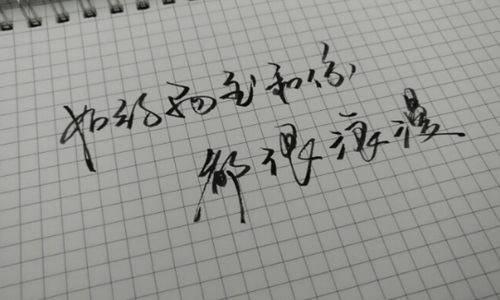 如约而至和你，
都很浪漫